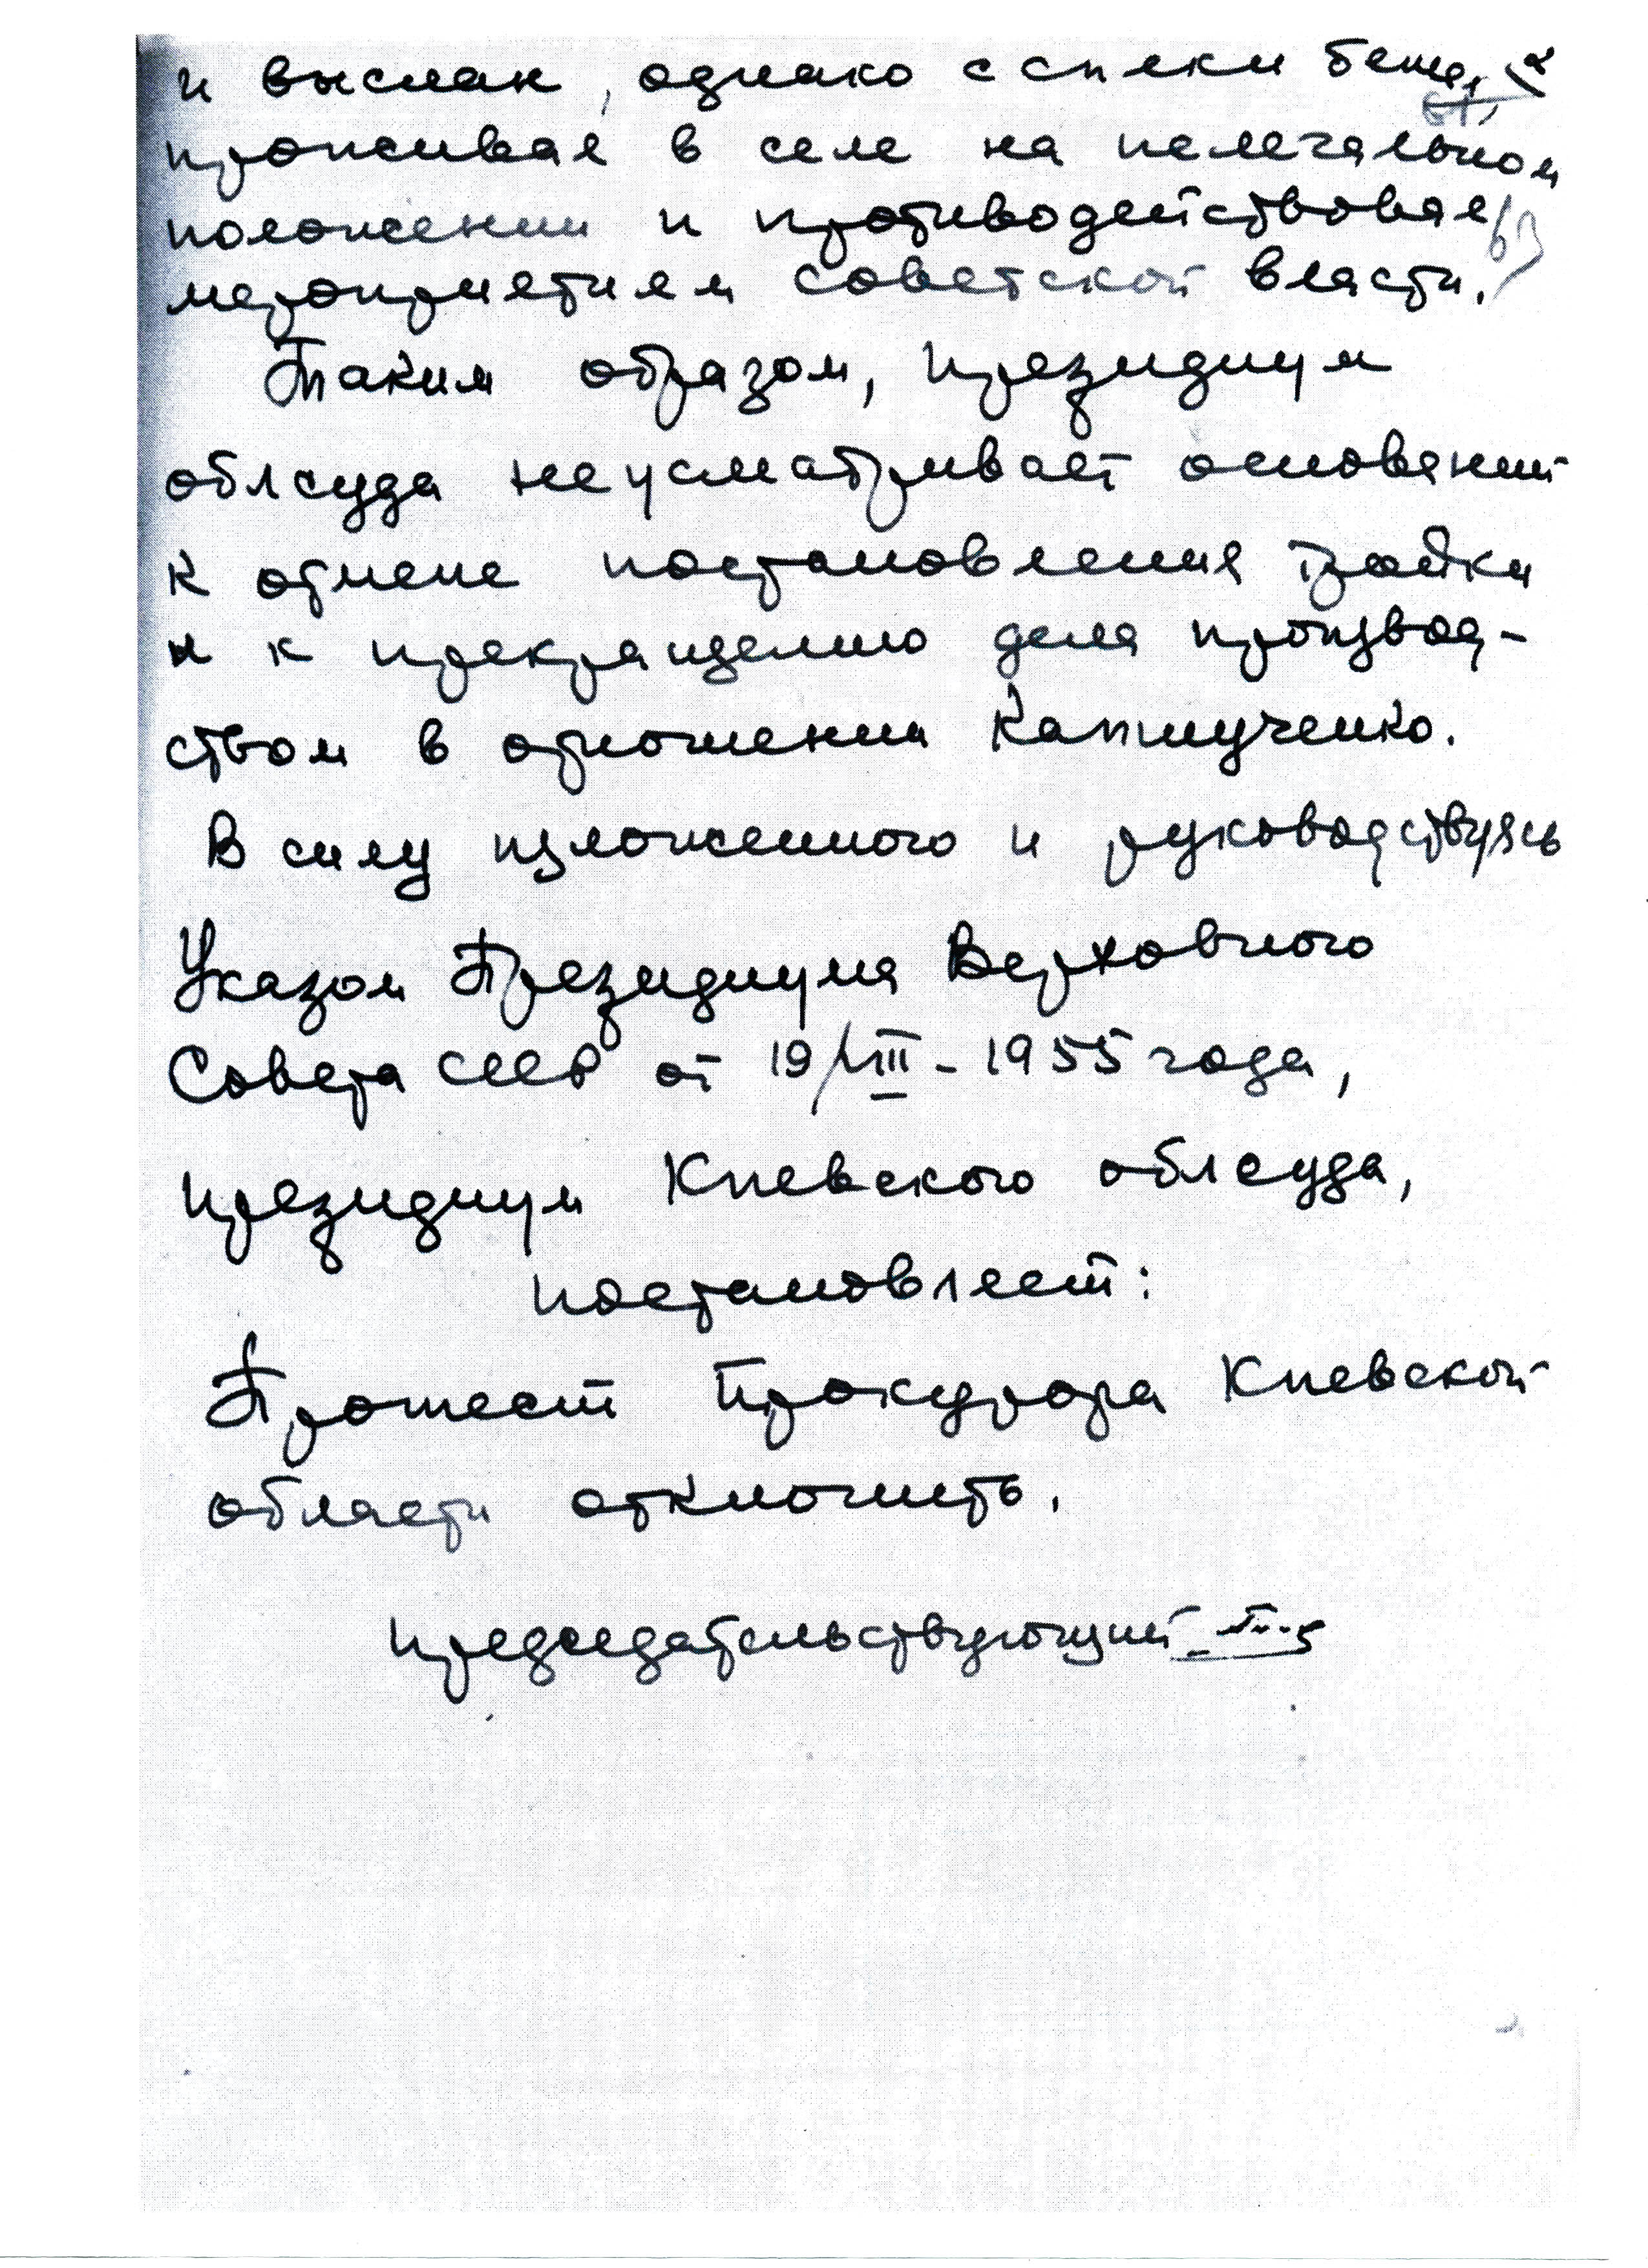 и выслан, однако с сылки бежал,
проживал в селе на нелегальном
положении и противодействовал
мероприятием советской власти.
Таким образом, президиум
облсуда неусматривает оснований
к отмене постановления тройки
и к прекращению дела производ-
ством в отношении Капшученко.
В силу изложенного и руководствуясь
Указом Президиума Верховного
Совета СССР от 19/VIII-1955 года,
президиум Киевского облсуда,
постановляет:
Протест Прокурора Киевской
области отклонить.
председательствующий